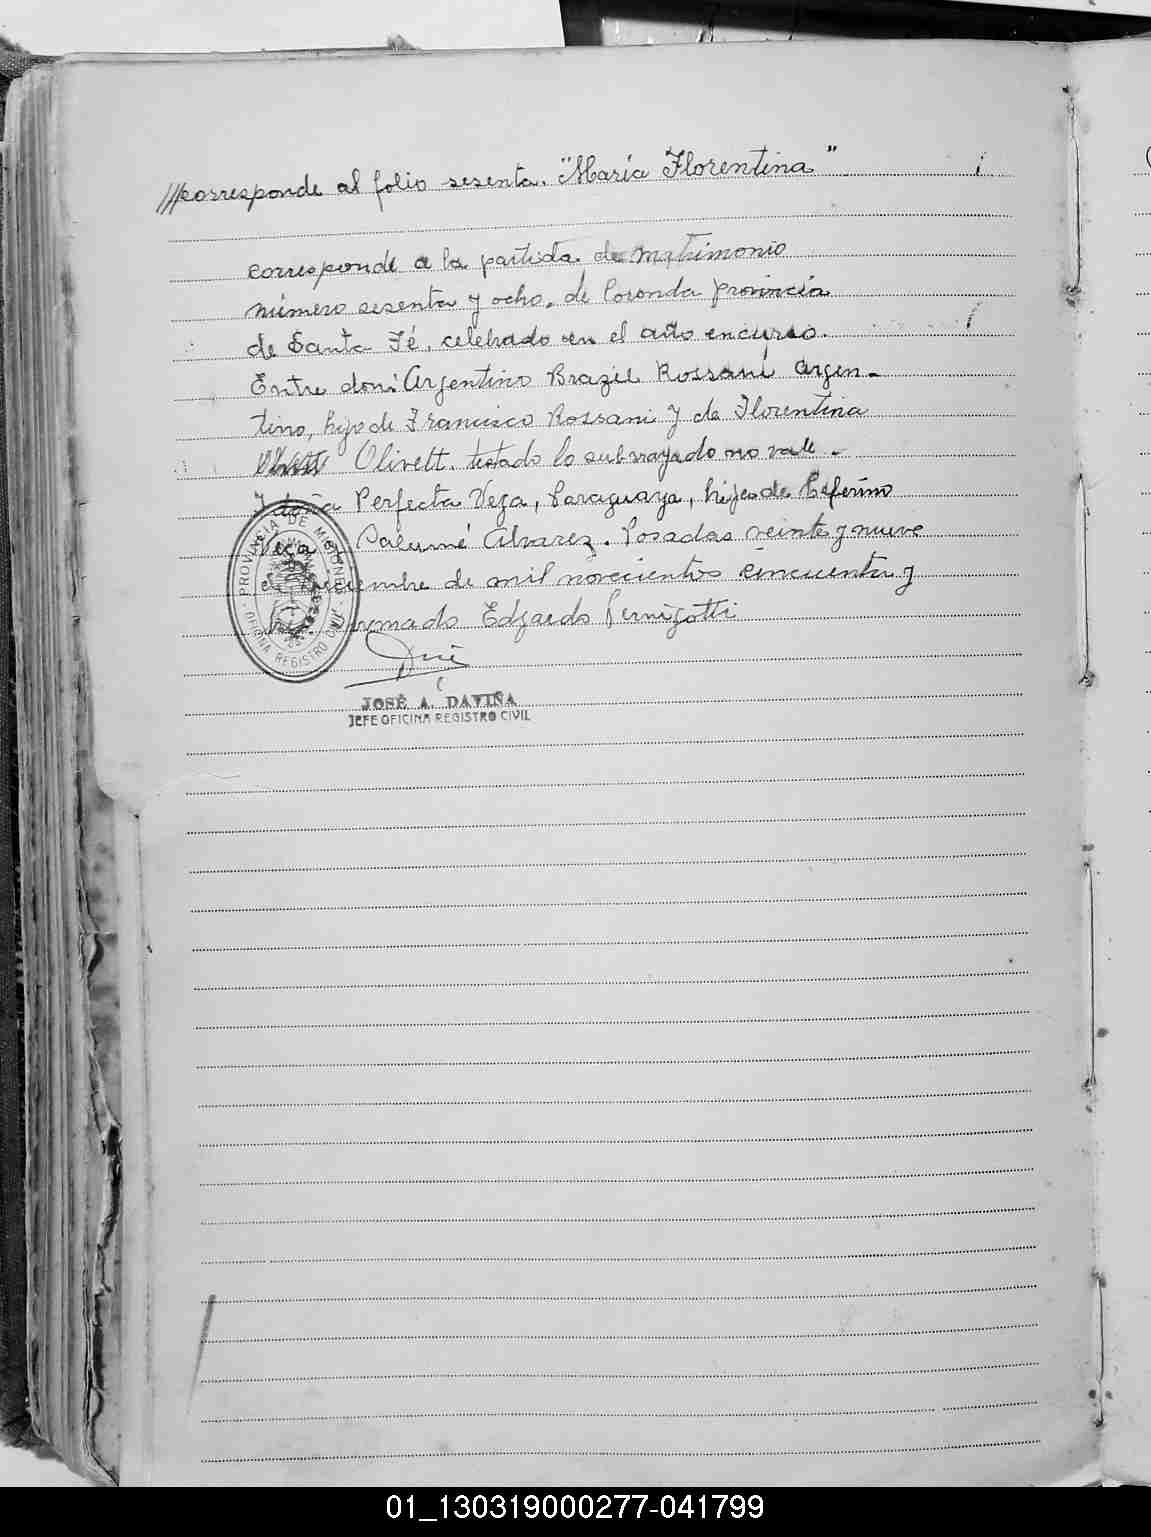 ///corresponde al folio sesenta. "María Florentina"
corresponde a la partida, de matrimonio
número sesenta y ocho, de Coronda provincia
de Santa Fé, celebrado en el año encurso.
Entre don: Argentino Brazil Rossani argen-
tino, hijo de Francisco Rossani y de Florentina
Olivett. testado lo subrayado no vale -
Y doña Perfecta Vega, Paraguaya, hijes de Ceferino
Vega Salumé Alvarez. Posadas veinte y nueve
de mil novecientos cincuenta y
Edgardo Pernigotti
PROVINCIA DE MISIONES
OFICINA REGISTRO CIVIL
JOSÉ A. DAVIÑA
JEFE OFICINA REGISTRO CIVIL
01_130319000277-041799